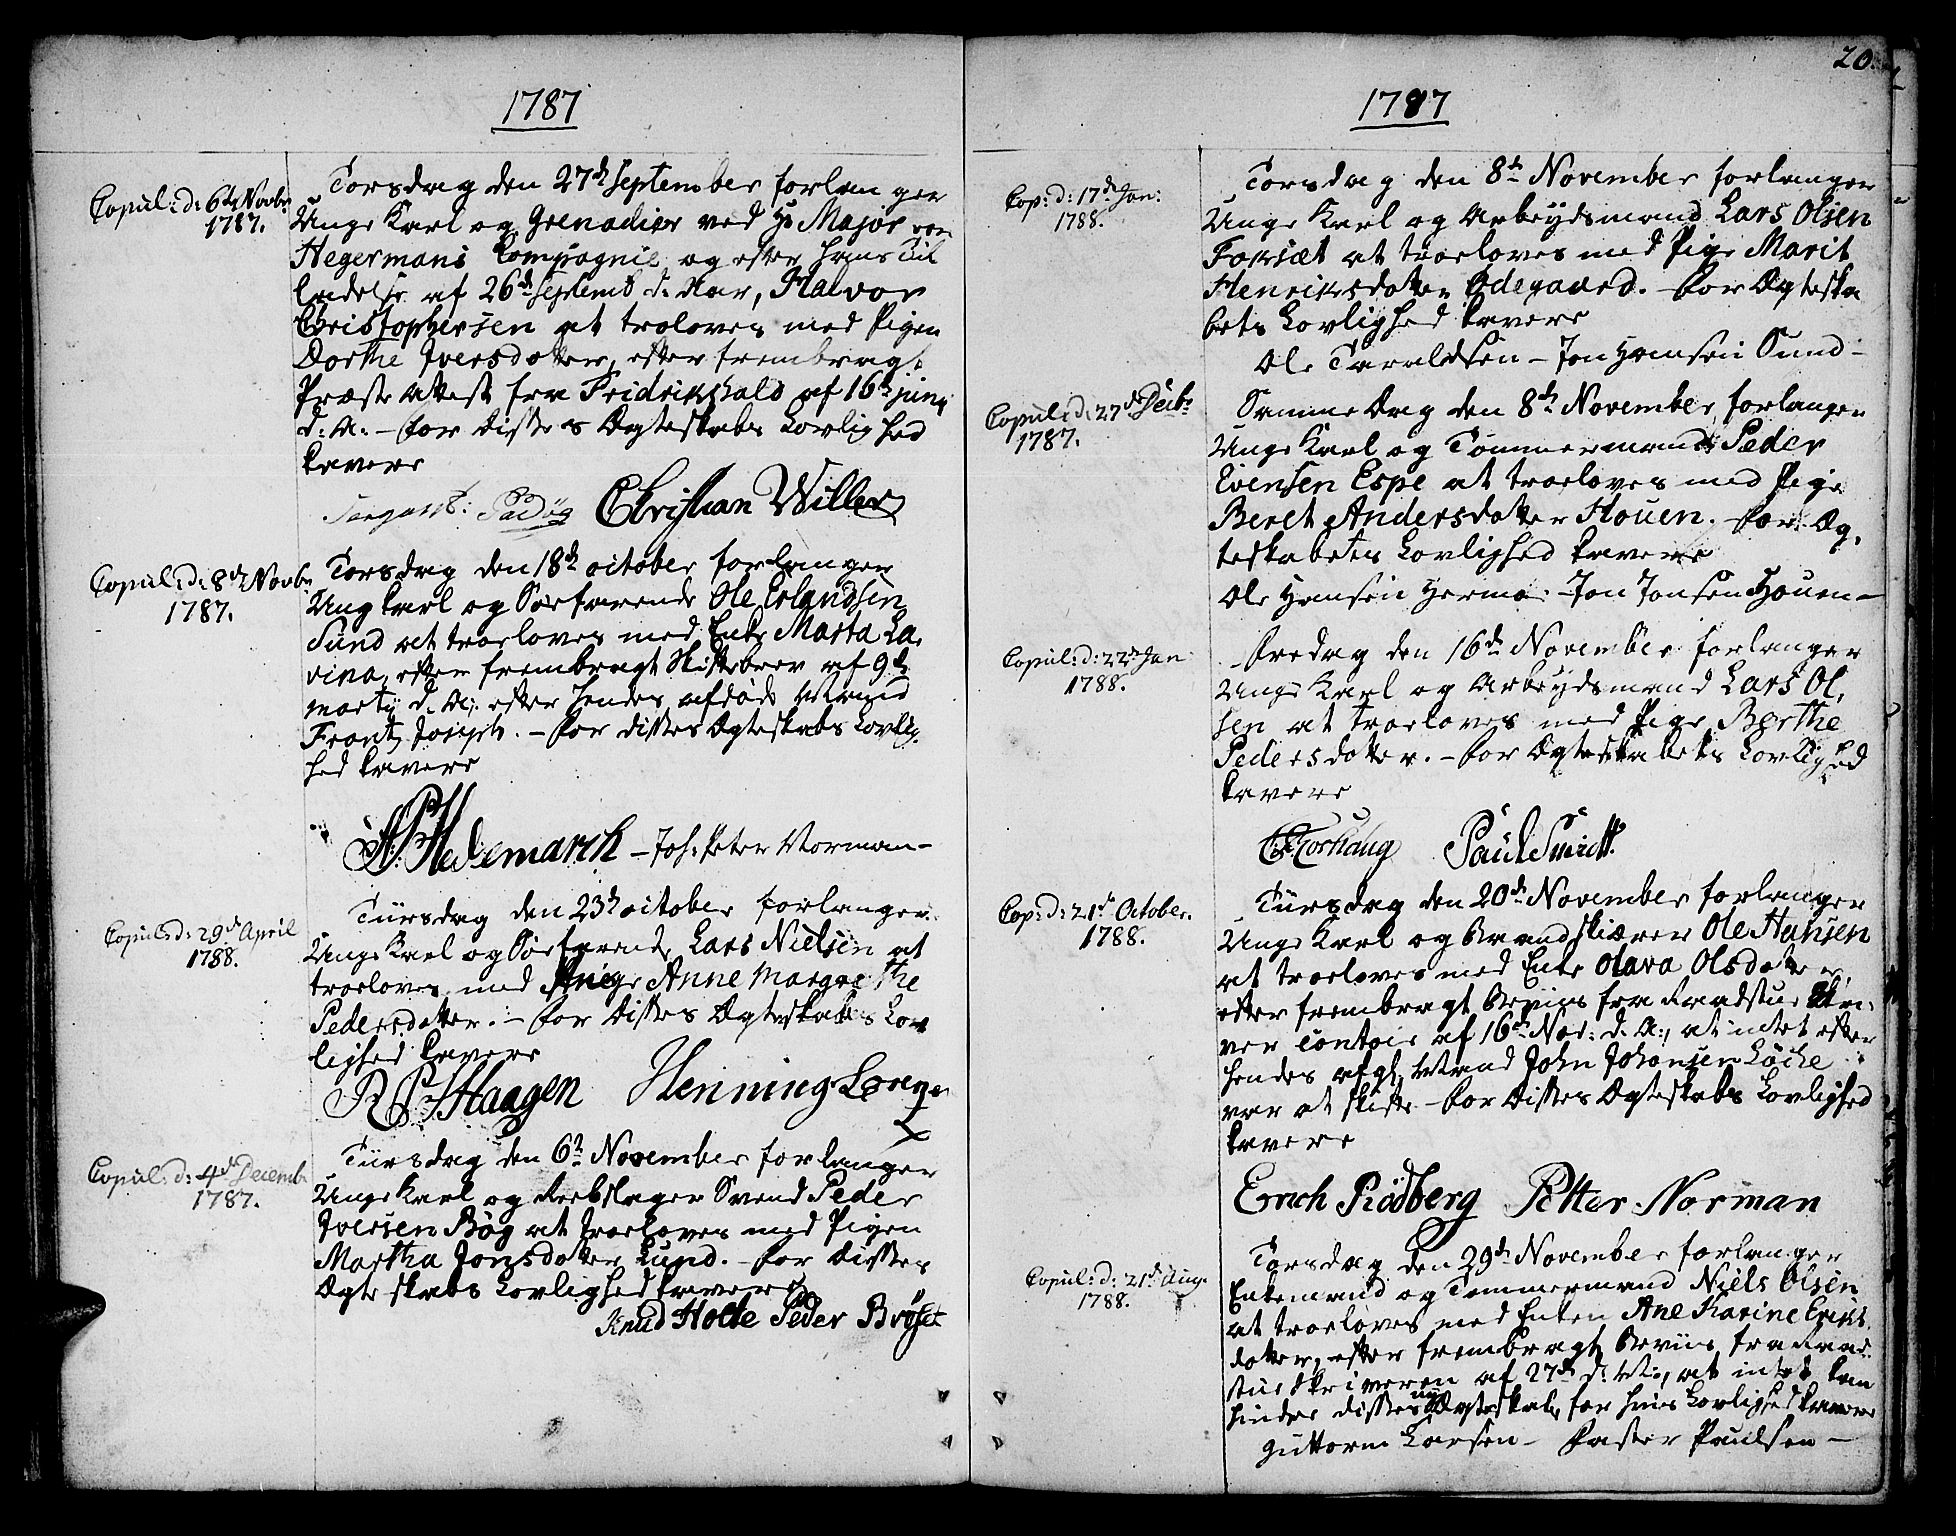 1787
Copul: d: 6te Novbr
1787.
Torsdag den 27de September forlanger
Unge Karl og Grenadier ved Hr Major von
Hegermans Compagnie og efter hans Til
ladelse af 26de Septemb d: Aar, Halvor
Christophersen at troloves med Pigen
Dorthe Iversdatter, efter frembragt
Præste Attest fra Fridrikshald af 16de Junij
d: A: - for disse Ægteskabs Lovlighed
cavere
Christian Willer
Copul: d: 8de Novbr
1787.
Torsdag den 18de october forlanger
Ung karl og Søefarende Ole Erlandsen
Sund at troeloves med Enke Marta La-
vina, efter frembragt Skiftebrev af 9de
martij d. A: efter hendes afdøde Mand
Frantz Joseph. - for disses Ægteskabs Lovlig-
hed cavere
Hedemarch - Joh: Peter Norman -
Copul: d: 29de April
1788.
Tiirsdag den 23de october forlanger
Unge Karl og Søefarende Lars Nielsen at
troeloves med Pige Anne Margrethe
Pedersdatter. - for disses Ægteskabs Lov
lighed cavere
R P Haagen Henning Lorenz
Copul: d: 4de Decemb
1787.
Tiirsdag den 6te November forlanger
Unge Karl og Reebslager Svend Peder
Iversen Bög at troeloves med Pigen
Martha Jonsdatter Lund. - for disses
Ægteskabs Lovlighed cavere
Knud Holte Peder Brøset
20.
1787
Cop: d: 17de Jan:
1788.
Torsdag den 8de November forlanger
Unge Karl og Arbeydsmand Lars Olsen
Forsæt at troeloves med Pige Marit
Henriksdatter Ødegaard. - for Ægteska
bets Lovlighed cavere
Ole Taraldsen - Jon Hansen Sund -
Copul: d: 27de Decbr
1787.
Samme Dag den 8de November forlanger
Unge Karl og Tømmermand Peder
Evensen Espe at troeloves med Pige
Beret Andersdatter Houen. for Æg-
teskabets Lovlighed cavere
Ole Hansen Hermo: - Jon Jonsen Houen -
Copul: d: 22de Jan
1788.
Fredag den 16de November forlanger
Unge Karl og Arbeydsmand Lars Ol-
sen at troeloves med Pige Berthe
Pedersdatter. - for Ægteskabets Lovlighed
cavere
Paul Smidt.
Cop: d: 21de October.
1788.
Tiirsdag den 20de November forlanger
Unge Karl og Brandskiærer Ole Hansen
at troeloves med Enke Olava Olsdatter,
efter frembragt Beviis fra Raadstue Skri-
ver contoir af 16de Nov: d. A:, at intet efter
hendes afgl. Mand John Johansen Löche
var at skifte - for disses Ægteskabs Lovlighed
cavere
Erich Rödberg Petter Norman
Copul: d: 21de Aug.
1788.
Torsdag den 29de November forlanger
Enkemand og Tømmermand Niels Olsen
at troeloves med Enken Ane Karine Eriks
datter, efter frembragt Beviis fra Raad-
stueskriveren af 27de d: M:, at intet kan
hindre disses nye Ægteskab, for hvis Lovlighed cavere
Guttorm Larsen - Paster Paulsen -